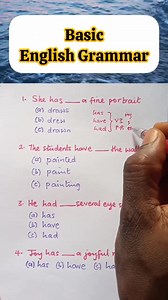 Basic
English Grammar
1. She has ___ a fine portrait
(a) draws
(b) drew
(c) drawn
has
have
had
V3
2. The students have ___ the wal
(a) painted
(b) paint
(c) painting
3. He had ___ several eye s
(a) has
(b) have
(c) had
4. Joy has ___ a joyful
(a) has (b) have (c) ha